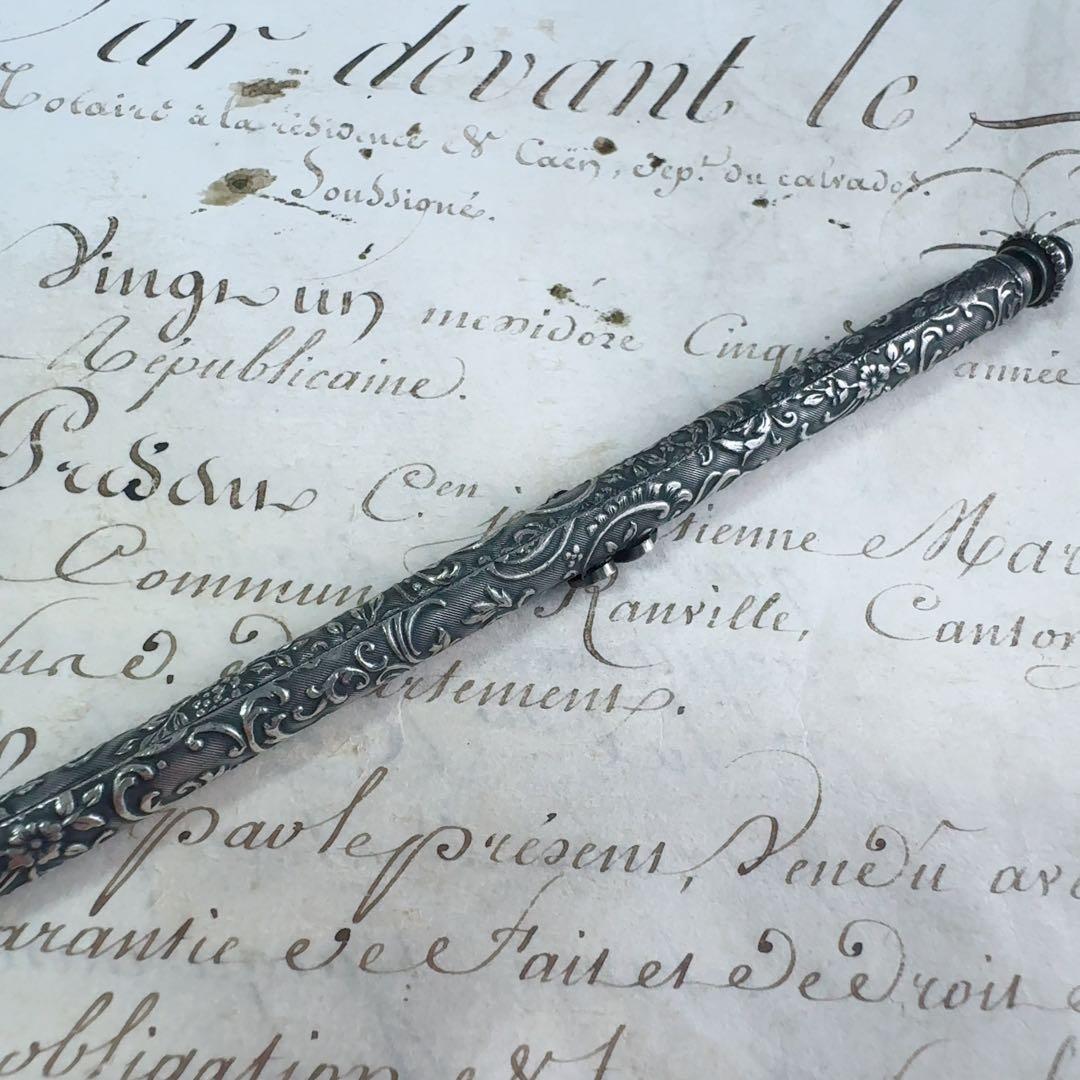 Par devant le
Notaire à la résidence de Caën, Dep.t du calvados.
Soussigné.
Vingt un messidore Cinqui année
Républicaine.
Présent C.en tienne Mar
Commun Ranville, Canton
D. artement.
par le présent, Vendu ave
arantie de Fait et de Droit
obligation &